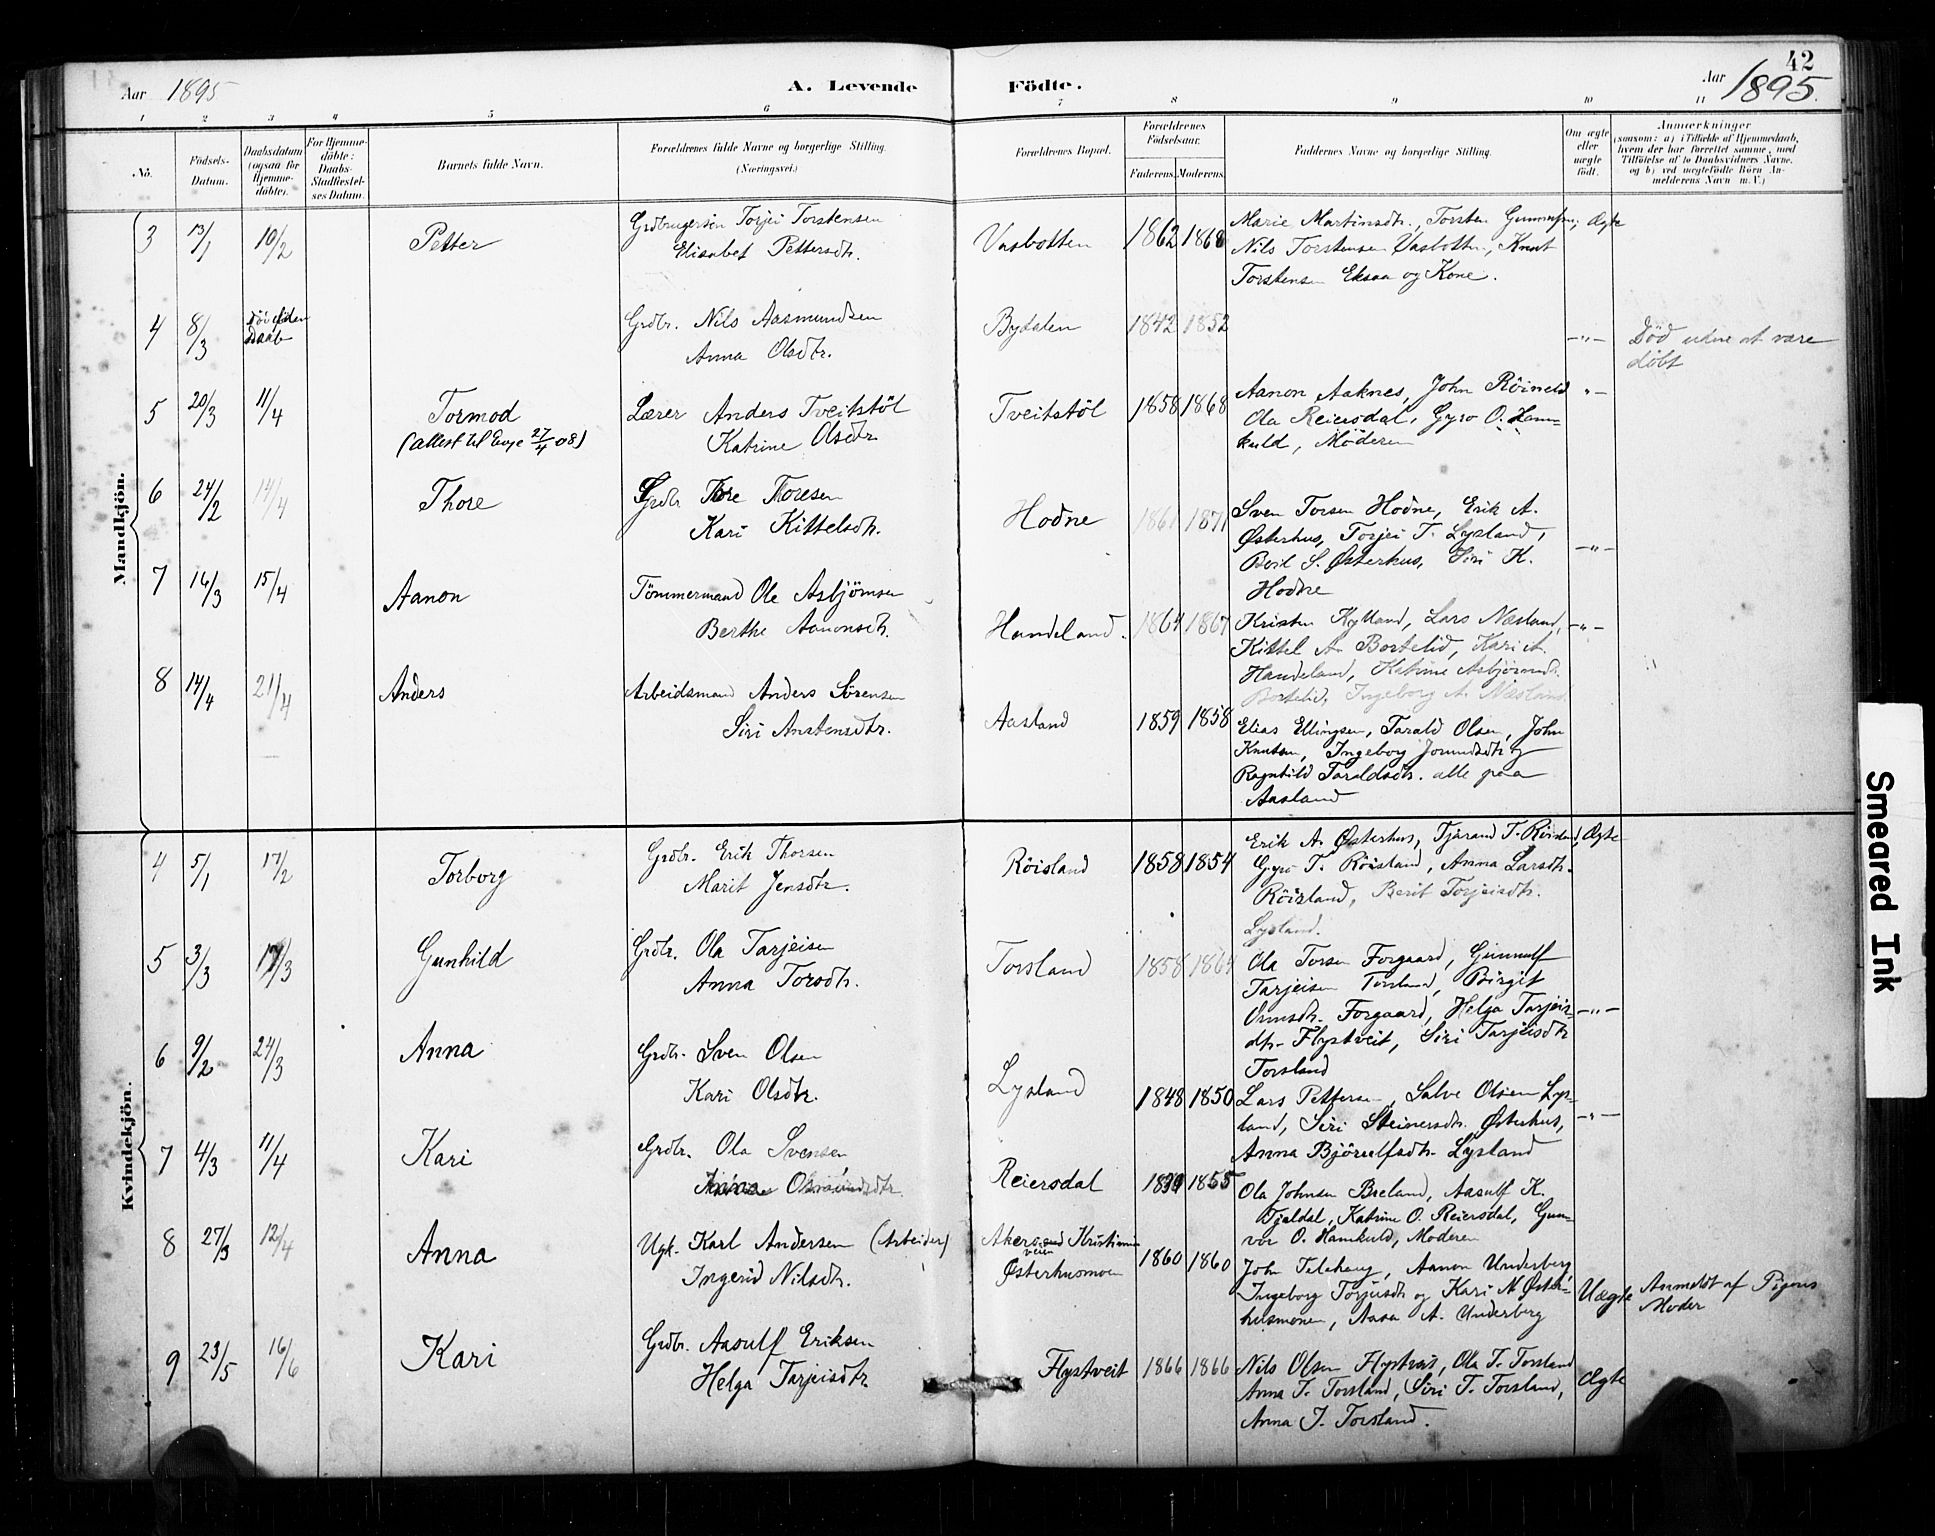 42
Aar 1895
A. Levende Födte.
Aar 1895.
1 2 3 4 5 6 7 8 9 10 11
No.
Födsels-Datum.
Daabsdatum (ogsaa for Hjemme-döbte).
For Hjemme-döbte: Daabs-Stadfæstel-ses Datum.
Barnets fulde Navn.
Forældrenes fulde Navne og borgerlige Stilling. (Næringsvei.)
Forældrenes Bopæl.
Forældrenes Födselsaar.
Faderens. Moderens.
Faddernes Navne og borgerlige Stilling.
Om ægte eller uægte födt.
Anmærkninger
(saasom: a) i Tilfælde af Hjemmedaab, hvem der har forrettet samme, med Tilföielse af to Daabsvidners Navne, og b) ved uægtefödte Börn Anmelderens Navn m. V.)
Mandkjön.
3 13/1 10/2 Petter
Grdbrugersön Torjei Torstensen
Elisabet Pettersdtr.
Vasbotten 1862 1868
Marie Martinsdtr., Torsten Gunnufsen, Ægte
Nils Torstensen Vasbotten, Knut
Torstensen Eksaa og Kone.
4 8/3 Död uden Daab
Grdbr. Nils Aasmundsen
Anna Olsdtr.
Bydalen 1842 1852 —"—
Död uden at være
döbt
5 20/3 11/4 Tormod
(attest til Evje 27/4 08)
Lærer Anders Tveitstöl
Katrine Olsdtr
Tveitstöl 1858 1868
Aanon Aaknes, John Röineld "—
Ola Reiersdal, Gyro O. Ham-
kuld, Moderen
6 24/2 14/4 Thore
Grdbr Tore Toresen
Kari Kittelsdtr.
Hodne 1861 1871
Sven Torsen Hodne, Erik A.
Østerhus, Torjei T. Lysland,
Beril S. Østerhus, Siri K. —"—
Hodne
7 16/3 15/4 Aanon
Tömmermand Ole Asbjörnsen
Berthe Aanonsdtr.
Handeland. 1864 1867
Kristen Kylland, Lars Næsland, —"—
Kittel A. Bortelid, Kari A.
Handeland, Katrine Asbjörnsd.
Bortelid, Ingeborg A. Næsland.
8 14/4 21/4 Anders
Arbeidsmand Anders Sörensen
Siri Anstensdtr.
Aasland 1859 1858
Elias Ellingsen, Tarald Olsen, John
Knutsen, Ingeborg Jorundsdtr og
Ragnhild Taraldsdtr. alle paa
Aasland
Kvindekjön.
4 5/1 17/2 Torborg
Grdbr. Erik Thorsen
Marit Jensdtr.
Röisland 1858 1854
Erik A. Østerhus, Tjärand T. Röisland, Ægte
Gyro T. Röisland, Anna Larsdtr.
Röisland, Berit Torjeisdtr.
Lysland.
5 3/3 17/3 Gunhild
Grdbr. Ola Tarjeisen
Anna Torsdtr.
Torsland 1858 1864
Ola Torsen Forgaard, Gunnulf
Tarjeisen Torsland, Birgit
Ormsdtr. Forgaard, Helga Tarjeis- —"—
dtr. Flystveit, Siri Tarjeisdtr
Torsland
6 9/2 24/3 Anna
Grdbr. Sven Olsen
Kari Olsdtr.
Lysland 1848 1850
Lars Pettersen, Salve Olsen Lys-
land, Siri Steinersdtr. Østerhus, —"—
Anna Björeulfsdtr. Lysland
7 4/3 11/4 Kari
Grdbr. Ola Svensen,
Reiersdal 1855
Ola Johnsen Breland, Aasulf K.
Tjaldal, Katrine O. Reiersdal, Gun-
vor O. Hamkuld, Moderen
8 27/3 12/4 Anna
Ugk. Karl Andersen (Arbeider)
Ingerid Nilsdtr.
Østerhusmoen 1860 1860
John Telehaug, Aanon Underberg,
Ingeborg Torjeisdtr og Kari N. Øster-
husmoen, Aasa A. Underberg
Uægte
Anmeldt af Pigens
Moder
9 23/5 16/6 Kari
Grdbr. Aasulf Eriksen
Helga Tarjeisdtr
Flystveit 1866 1866
Nils Olsen Flystveit, Ola T. Torsland
Anna T. Torsland, Siri T. Torsland, Ægte
Anna J. Torsland.
Smeared Ink